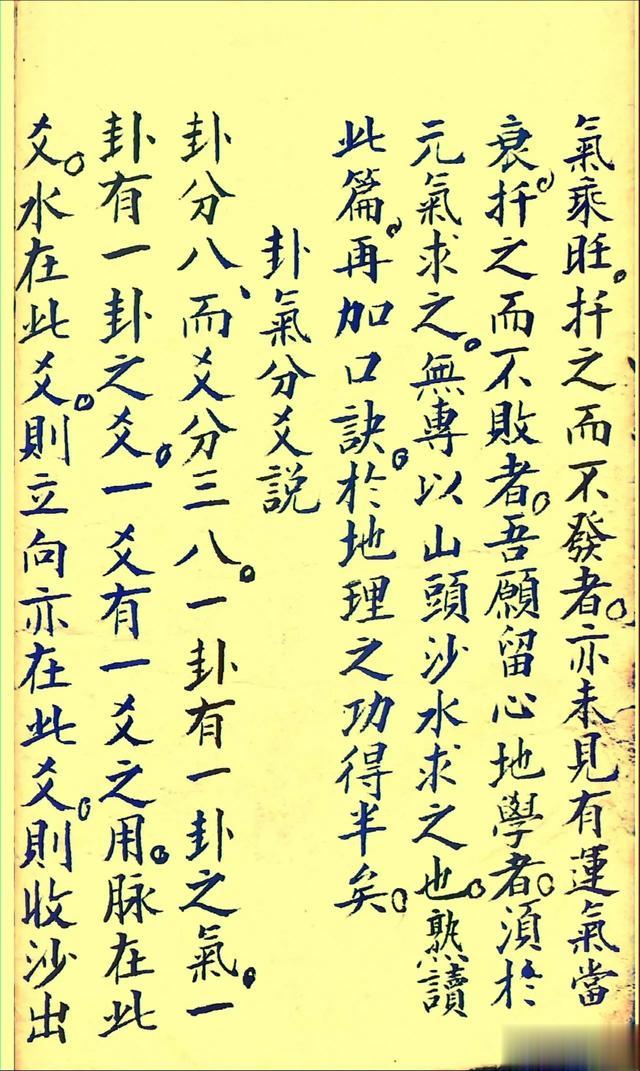 氣乘旺。扦之而不發者。亦未見有運氣當
衰。扦之而不敗者。吾願留心地學者。須於
元氣求之。無專以山頭沙水求之也。熟讀
此篇。再加口訣。於地理之功得半矣。
卦氣分爻說
卦分八、而爻分三八。一卦有一卦之氣。一
卦有一卦之爻。一爻有一爻之用。脉在此
爻。水在此爻。則立向亦在此爻。則收沙出